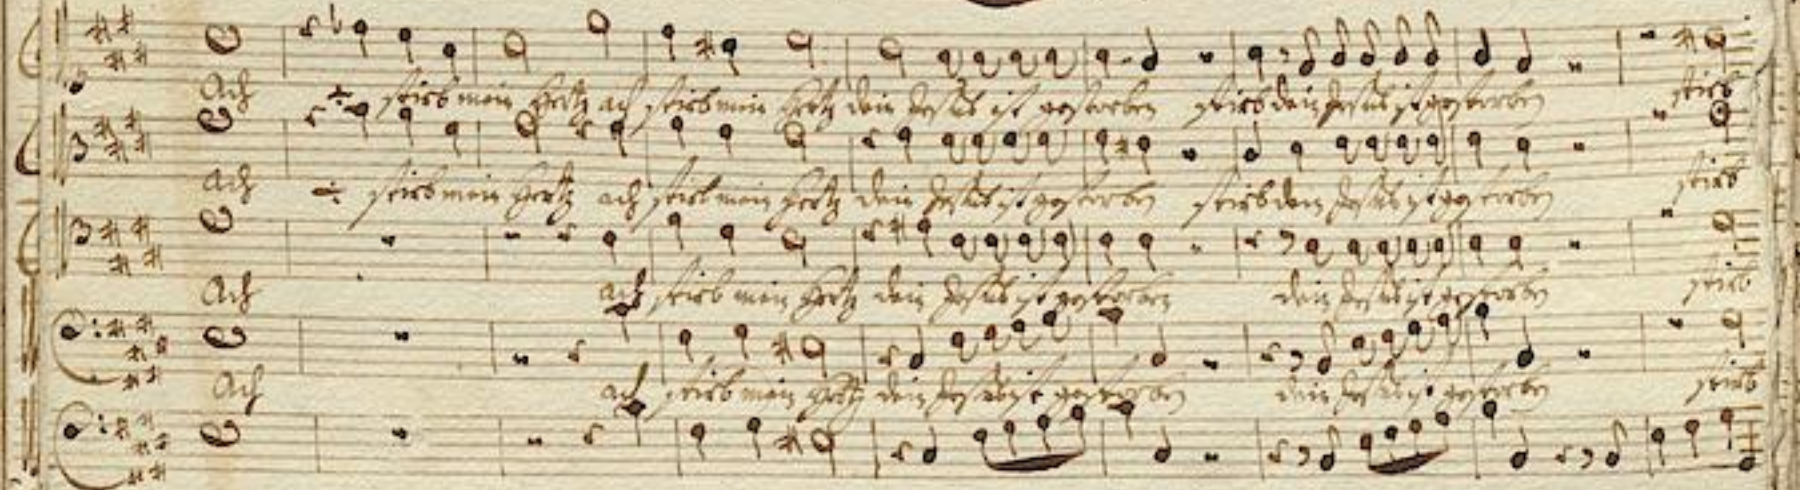 Ach ÷ stirb mein Hertz ach stirb mein Hertz dein Jesus ist gestorben stirb dein Jesus ist gestorben stirb
Ach ÷ stirb mein Hertz ach stirb mein Hertz dein Jesus ist gestorben stirb dein Jesus ist gestorben stirb
Ach ach stirb mein Hertz dein Jesus ist gestorben dein Jesus ist gestorben stirb
Ach ach stirb mein Hertz dein Jesus ist gestorben dein Jesus ist gestorben stirb